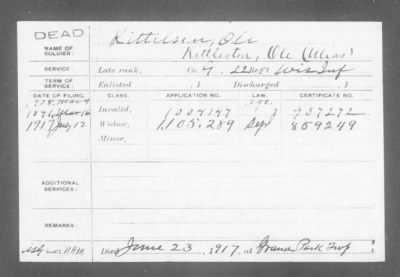 DEAD
NAME OF SOLDIER: Kittilsen, Ole
Kittleson, Ole (Alias)
SERVICE: Late rank, Co. 22 Reg't Wis Inf
TERM OF SERVICE: Enlisted , 1 Discharged , 1
DATE OF FILING. CLASS. APPLICATION NO. LAW. CERTIFICATE NO.
Invalid, 737272
1917 July 12 Widow, 1105,289 Sep 859249
Minor,
ADDITIONAL SERVICES:
REMARKS:
Died June 23, 1917, at